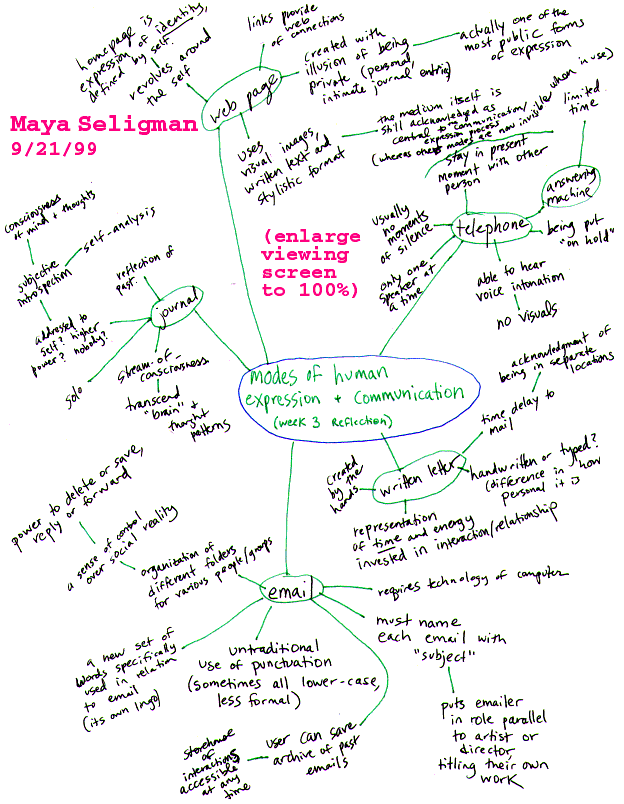 homepage is
expression of identity,
defined by self
revolves around
the self
links provide
web connections
web page
created with
illusion of being
private (personal,
intimate journal entries)
actually one of the
most public forms
of expression
uses
visual images,
written text and
stylistic format
the medium itself is
still acknowledged as
central to communication/
expression process
(whereas other modes are now invisible when in use)
Maya Seligman
9/21/99
(enlarge
viewing
screen
to 100%)
limited
time
answering
machine
stay in present
moment with other
person
telephone
being put
"on hold"
usually
no
moments
of silence
only one
speaker at
a time
able to hear
voice intonation
no visuals
consciousness
of mind + thoughts
self-analysis
subjective
introspection
reflection of
past
journal
addressed to
self? higher
power? nobody?
solo
stream-of-
consciousness
transcend
"brain" +
thought
patterns
modes of human
expression + communication
(week 3 reflection)
acknowledgment of
being in separate
locations
time delay to
mail
written letter
handwritten or typed?
(difference in how
personal it is)
created
by the
hands
representation
of time and energy
invested in interaction/relationship
power to delete or save,
reply or forward
a sense of control
over social reality
organization of
different folders
for various people/groups
email
requires technology of computer
must name
each email with
"subject"
puts emailer
in role parallel
to artist or
director,
titling their own
work
a new set of
words specifically
used in relation
to email
(its own lingo)
untraditional
use of punctuation
(sometimes all lower-case,
less formal)
user can save
archive of past
emails
storehouse
of
interactions
accessible
at any
time